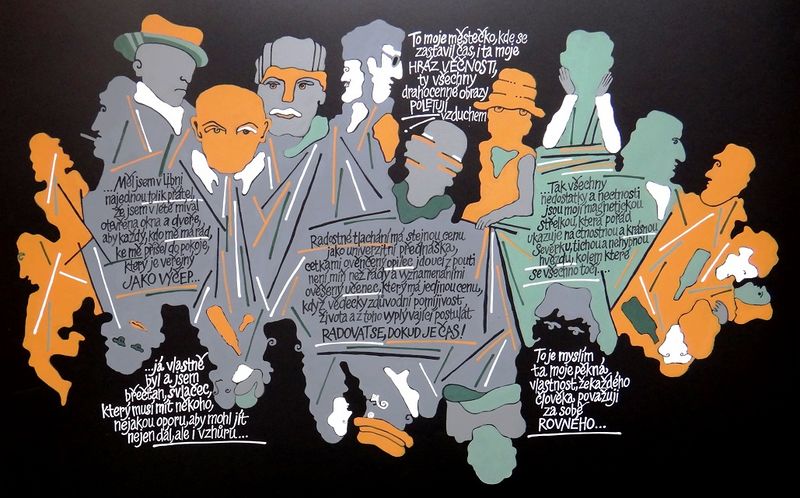 To moje městečko, kde se
zastavil čas, i ta moje
HRÁZ VĚČNOSTI,
ty všechny
drahocenné obrazy
POLETUJÍ
vzduchem
...Měl jsem v Libni
najednou tolik přátel,
že jsem v létě míval
otevřená okna a dveře,
aby každý, kdo mě má rád,
ke mě přišel do pokoje,
který je veřejný
JAKO VÝČEP...
Radostné tlachání má stejnou cenu
jako univerzitní přednáška,
cetkami ověnčený opilec jdoucí z pouti
není míň než řády a vyznamenáními
ověšený učenec, který má jedinou cenu,
když vědecky zdůvodní pomíjivost
života a z toho vyplývající postulát
RADOVAT SE, DOKUD JE ČAS!
...Tak všechny
nedostatky a nectnosti
jsou mojí magnetickou
střelkou, která pořád
ukazuje na ctnostnou a krásnou
Severku, tichou a nehybnou
hvězdu, kolem které
se všechno točí...
...já vlastně
byl a jsem
břečťan, svlačec,
který musí mít někoho,
nějakou oporu, aby mohl jít
nejen dál, ale i vzhůru...
To je myslím
ta moje pěkná
vlastnost, že každého
člověka, považuji
za sobě
ROVNÉHO...